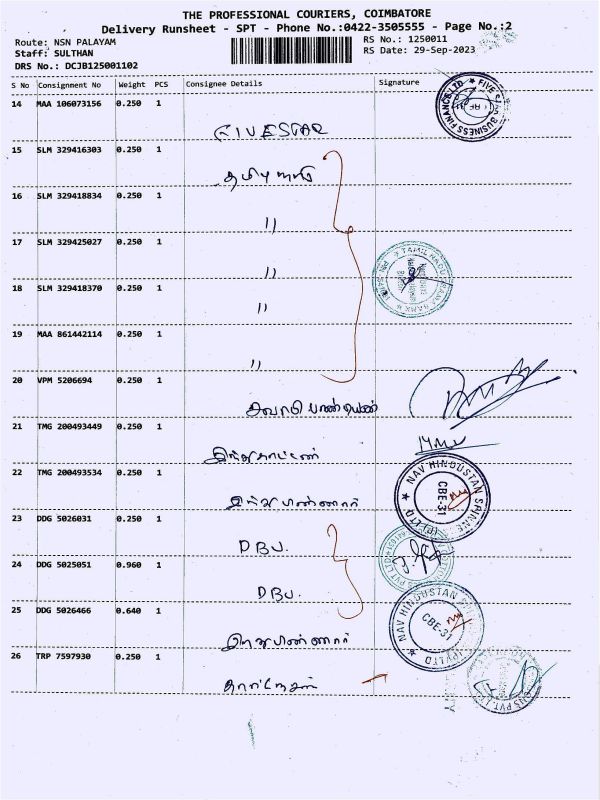 THE PROFESSIONAL COURIERS, COIMBATORE
Delivery Runsheet - SPT - Phone No.:0422-3505555 - Page No.:2
Route: NSN PALAYAM
RS No.: 1250011
Staff: SULTHAN
RS Date: 29-Sep-2023
DRS No.: DCJB125001102
S No Consignment No Weight PCS Consignee Details Signature
14 MAA 106073156 0.250 1
FIVESTAR
FIVE STAR BUSINESS FINANCE LTD
15 SLM 329416303 0.250 1
தமிழ்நாடு
16 SLM 329418834 0.250 1
"
17 SLM 329425027 0.250 1
"
TAMIL NADU GRAMA BANK
18 SLM 329418370 0.250 1
"
19 MAA 861442114 0.250 1
"
20 VPM 5206694 0.250 1
21 TMG 200493449 0.250 1
22 TMG 200493534 0.250 1
NAV HINDUSTAN
(P)LTD
CBE-31
23 DDG 5026031 0.250 1
DBU.
24 DDG 5025051 0.960 1
DBU.
25 DDG 5026466 0.640 1
NAV HINDUSTAN
(P)LTD
CBE-31
26 TRP 7597930 0.250 1
PVT. LTD